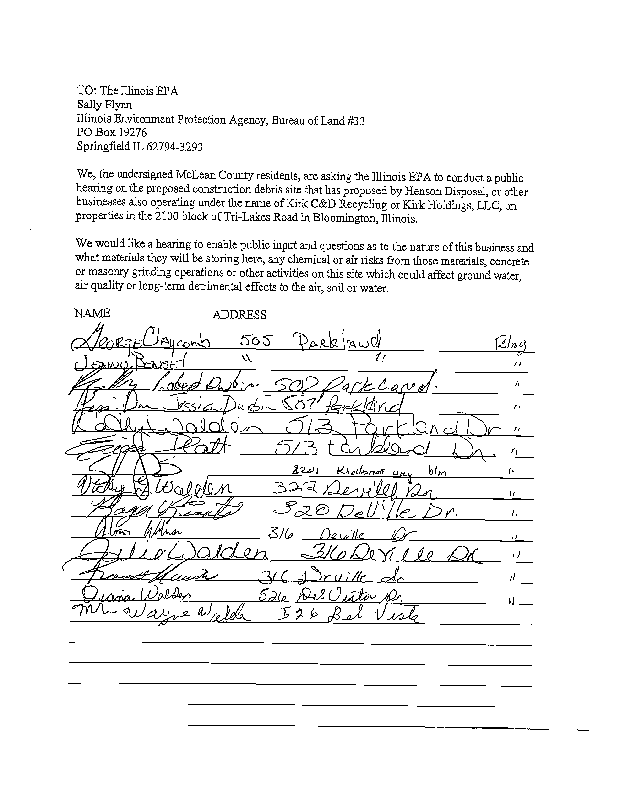 TO: The Illinois EPA
Sally Flynn
Illinois Environment Protection Agency, Bureau of Land #33
PO Box 19276
Springfield IL 62794-3293
We, the undersigned McLean County residents, are asking the Illinois EPA to conduct a public
hearing on the proposed construction debris site that has proposed by Henson Disposal, or other
businesses also operating under the name of Kirk C&D Recycling or Kirk Holdings, LLC, on
properties in the 2100 block of Tri-Lakes Road in Bloomington, Illinois.
We would like a hearing to enable public input and questions as to the nature of this business and
what materials they will be storing here, any chemical or air risks from those materials, concrete
or masonry grinding operations or other activities on this site which could affect ground water,
air quality or long-term detrimental effects to the air, soil or water.
NAME ADDRESS
George Claycomb 505 Parkland
" " "
Robert Durbin 502 Parkland "
Jessica Durbin 507 Parkland "
Walden 513 Parkland Dr "
Platt 513 Parkland Dr "
blm "
Vicky L Walden 322 Deville Dr "
320 DeVille Dr. "
316 Deville Dr "
Julie Walden 316 DeVille Dr "
316 Deville Dr "
Diana Walden 526 Del Vista Dr "
Mr. Wayne 526 Del Vista